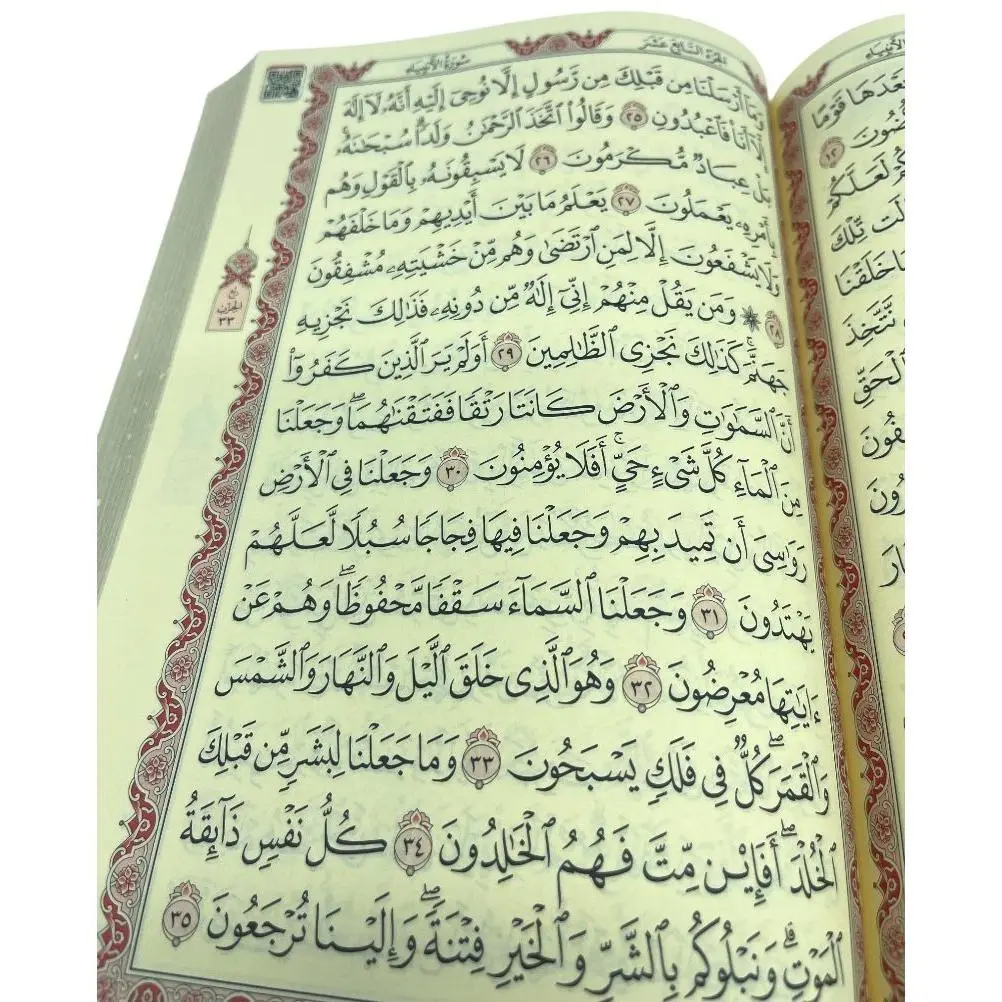 سُورَةُ الأَنبِيَاءِ
الجُزْءُ السَّابِعَ عَشَرَ
وَمَآ أَرْسَلْنَا مِن قَبْلِكَ مِن رَّسُولٍ إِلَّا نُوحِىٓ إِلَيْهِ أَنَّهُۥ لَآ إِلَٰهَ
إِلَّآ أَنَا۠ فَٱعْبُدُونِ ٢٥ وَقَالُوا۟ ٱتَّخَذَ ٱلرَّحْمَٰنُ وَلَدًا ۗ سُبْحَٰنَهُۥ ۚ
بَلْ عِبَادٌ مُّكْرَمُونَ ٢٦ لَا يَسْبِقُونَهُۥ بِٱلْقَوْلِ وَهُم
بِأَمْرِهِۦ يَعْمَلُونَ ٢٧ يَعْلَمُ مَا بَيْنَ أَيْدِيهِمْ وَمَا خَلْفَهُمْ
وَلَا يَشْفَعُونَ إِلَّا لِمَنِ ٱرْتَضَىٰ وَهُم مِّنْ خَشْيَتِهِۦ مُشْفِقُونَ
٢٨ ۞ وَمَن يَقُلْ مِنْهُمْ إِنِّىٓ إِلَٰهٌ مِّن دُونِهِۦ فَذَٰلِكَ نَجْزِيهِ
جَهَنَّمَ ۚ كَذَٰلِكَ نَجْزِى ٱلظَّٰلِمِينَ ٢٩ أَوَلَمْ يَرَ ٱلَّذِينَ كَفَرُوٓا۟
أَنَّ ٱلسَّمَٰوَٰتِ وَٱلْأَرْضَ كَانَتَا رَتْقًا فَفَتَقْنَٰهُمَا ۖ وَجَعَلْنَا
مِنَ ٱلْمَآءِ كُلَّ شَىْءٍ حَىٍّ ۖ أَفَلَا يُؤْمِنُونَ ٣٠ وَجَعَلْنَا فِى ٱلْأَرْضِ
رَوَٰسِىَ أَن تَمِيدَ بِهِمْ وَجَعَلْنَا فِيهَا فِجَاجًا سُبُلًا لَّعَلَّهُمْ
يَهْتَدُونَ ٣١ وَجَعَلْنَا ٱلسَّمَآءَ سَقْفًا مَّحْفُوظًا ۖ وَهُمْ عَنْ
ءَايَٰتِهَا مُعْرِضُونَ ٣٢ وَهُوَ ٱلَّذِى خَلَقَ ٱلَّيْلَ وَٱلنَّهَارَ وَٱلشَّمْسَ
وَٱلْقَمَرَ ۖ كُلٌّ فِى فَلَكٍ يَسْبَحُونَ ٣٣ وَمَا جَعَلْنَا لِبَشَرٍ مِّن قَبْلِكَ
ٱلْخُلْدَ ۖ أَفَإِي۟ن مِّتَّ فَهُمُ ٱلْخَٰلِدُونَ ٣٤ كُلُّ نَفْسٍ ذَآئِقَةُ
ٱلْمَوْتِ ۗ وَنَبْلُوكُم بِٱلشَّرِّ وَٱلْخَيْرِ فِتْنَةً ۖ وَإِلَيْنَا تُرْجَعُونَ ٣٥
ربع
الحزب
٣٣
بَعْدَهَا قَوْمًا
١٢
لَعَلَّكُمْ
تِّلْكَ
خَلَقْنَا
نَّتَّخِذَ
ٱلْحَقِّ